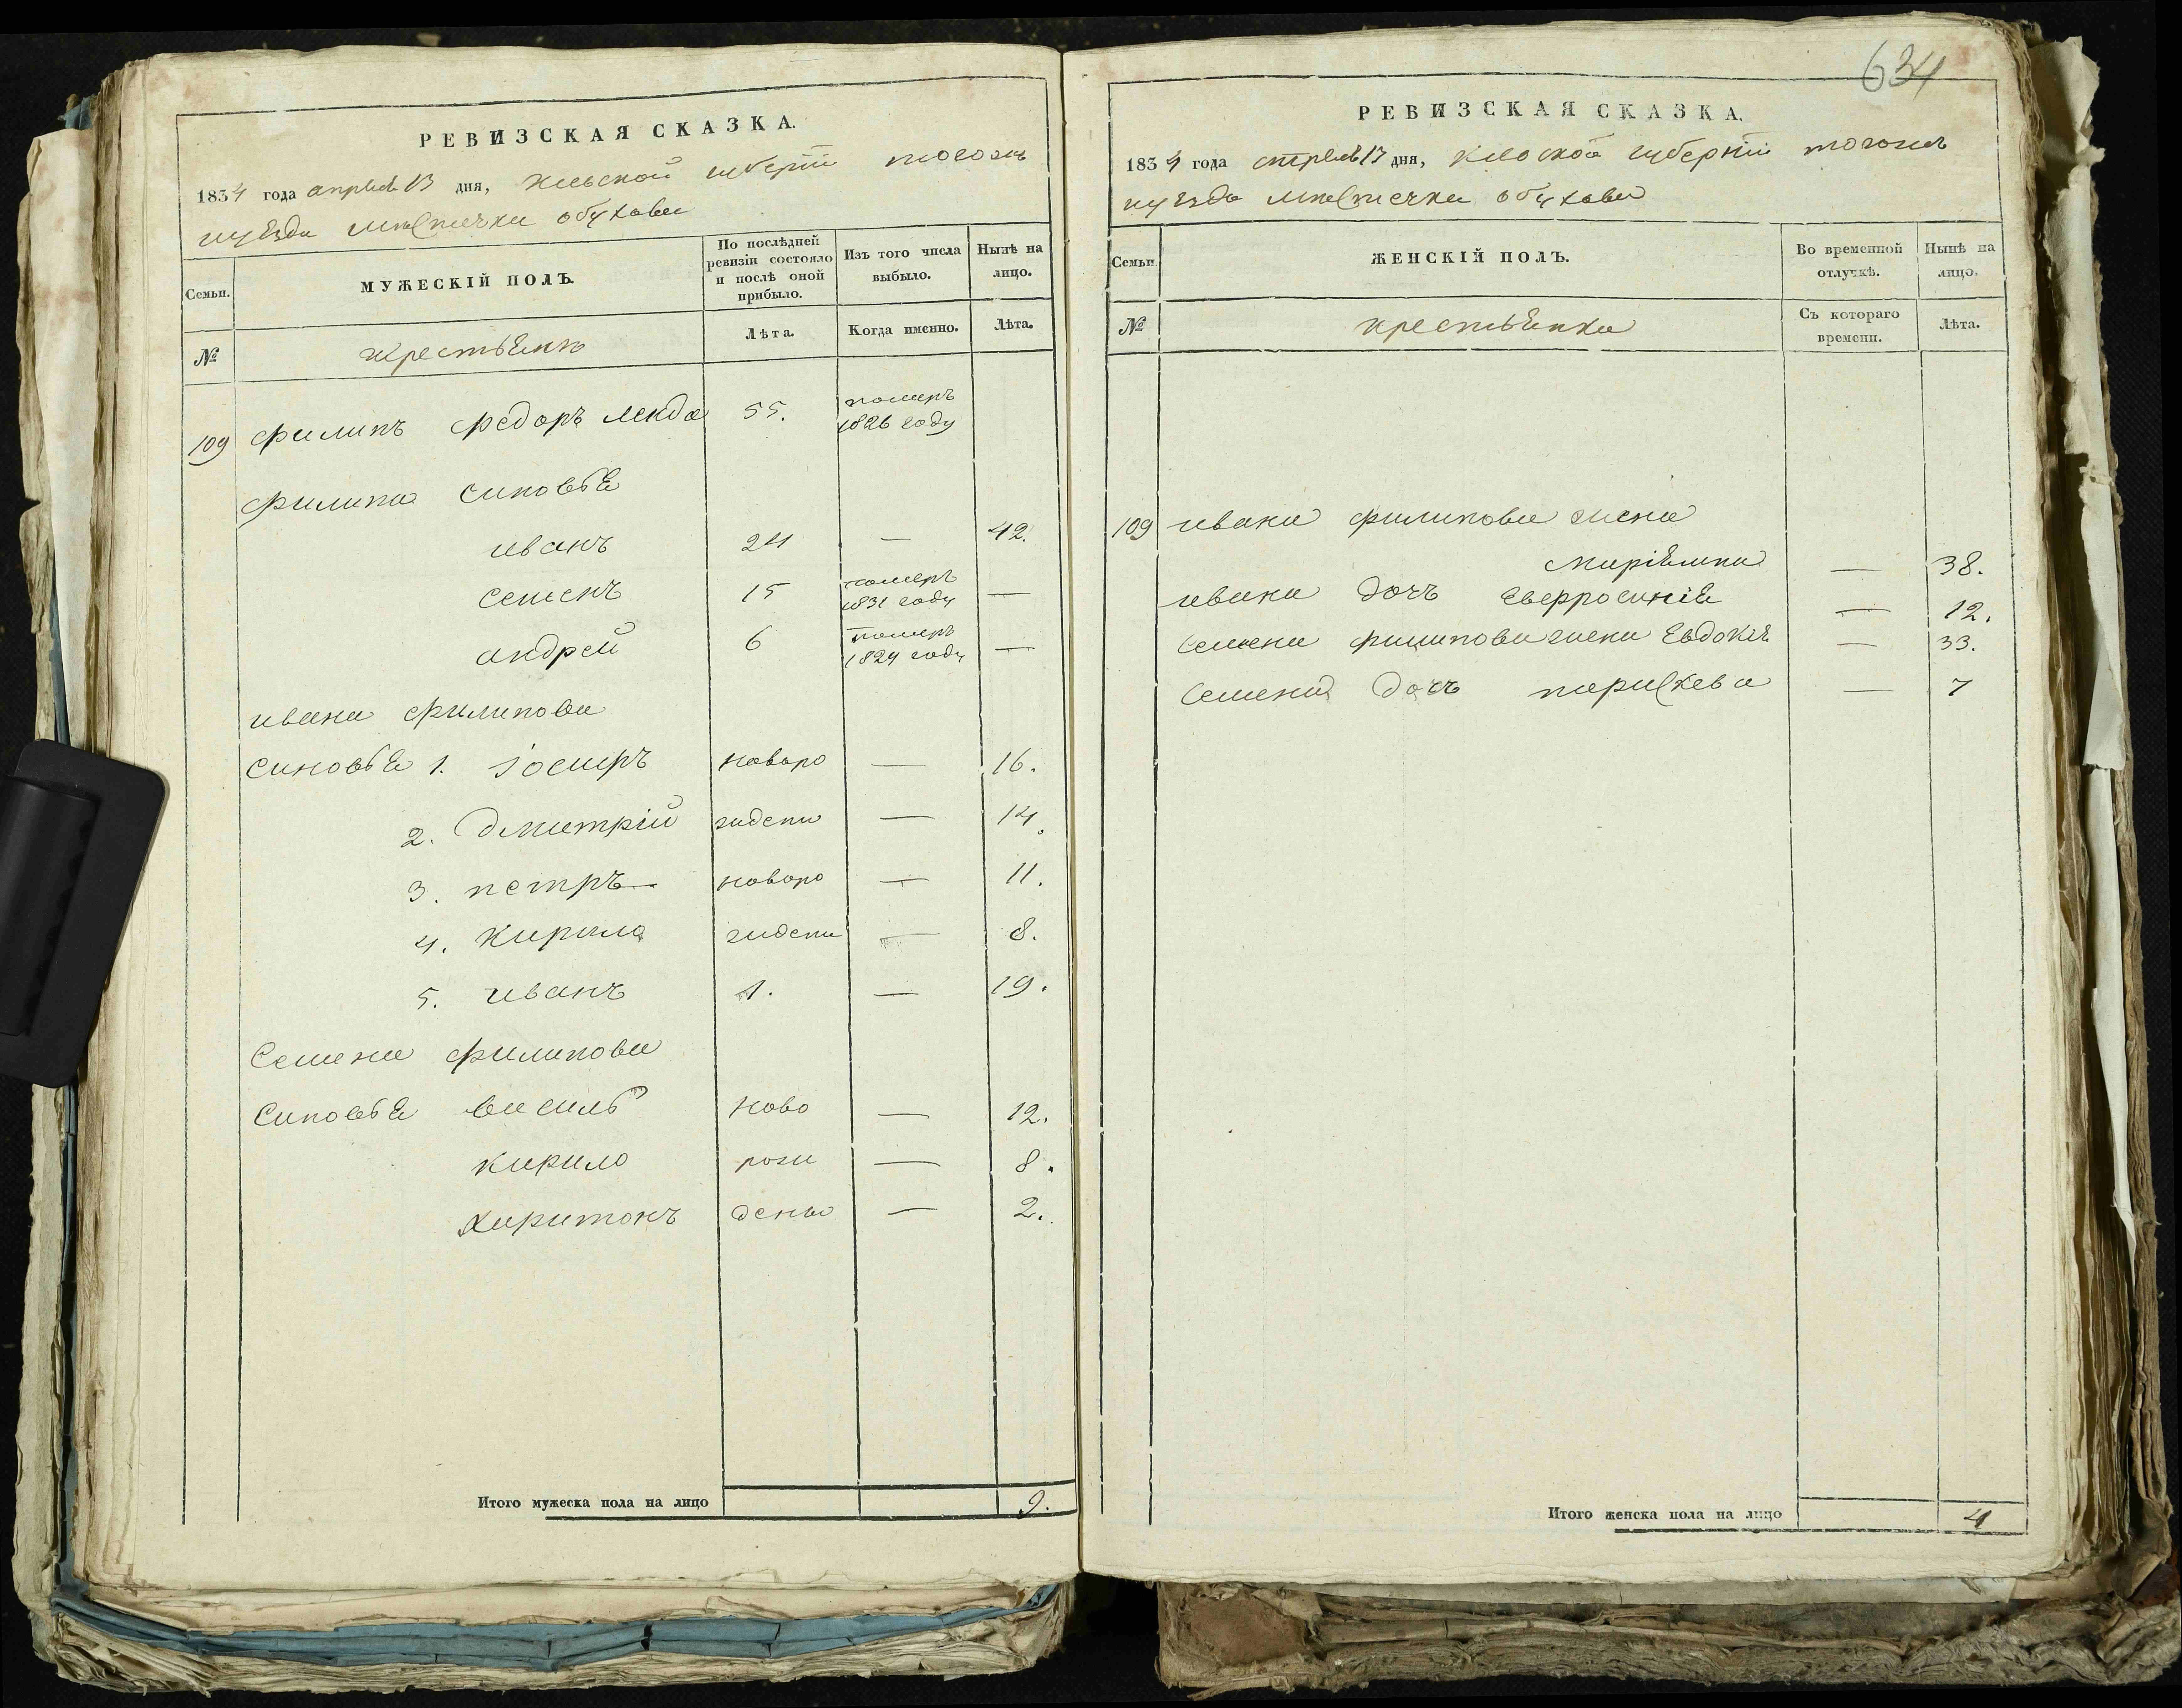 РЕВИЗСКАЯ СКАЗКА.
1834 года апреля 13 дня, Киевской губернiи тогожъ
уезда местечка обухова
Семьи.
МУЖЕСКІЙ ПОЛЪ.
По послѣдней ревизіи состояло и послѣ оной прибыло.
Изъ того числа выбыло.
Нынѣ на лицо.
№
крестьяне
Лѣта.
Когда именно.
Лѣта.
109 филипъ федоръ 55. померъ 1826 году
филипа синовья
иванъ 24 — 42.
семенъ 15 померъ 1831 году —
андрей 6 померъ 1824 году —
ивана филипова
синовья 1. іосифъ новоро — 16.
2. дмитрій ждени — 14.
3. петръ новоро — 11.
4. кирило ждени — 8.
5. иванъ 1. — 19.
Семена филипова
Синовья василь ново — 12.
кирило рож — 8.
харитонъ дены — 2.
Итого мужеска пола на лицо 9.
634
РЕВИЗСКАЯ СКАЗКА.
1834 года апреля 13 дня, Киевской губернiи тогожъ
уезда местечка обухова
Семьи
ЖЕНСКІЙ ПОЛЪ.
Во временной отлучкѣ.
Нынѣ на лицо.
№
крестьянки
Съ котораго времени.
Лѣта.
109 ивана филипова жена
маріянна — 38.
ивана дочъ Евфросинія — 12.
семена филипова жена Евдокія — 33.
семена дочъ параскева — 7
Итого женска пола на лицо 4